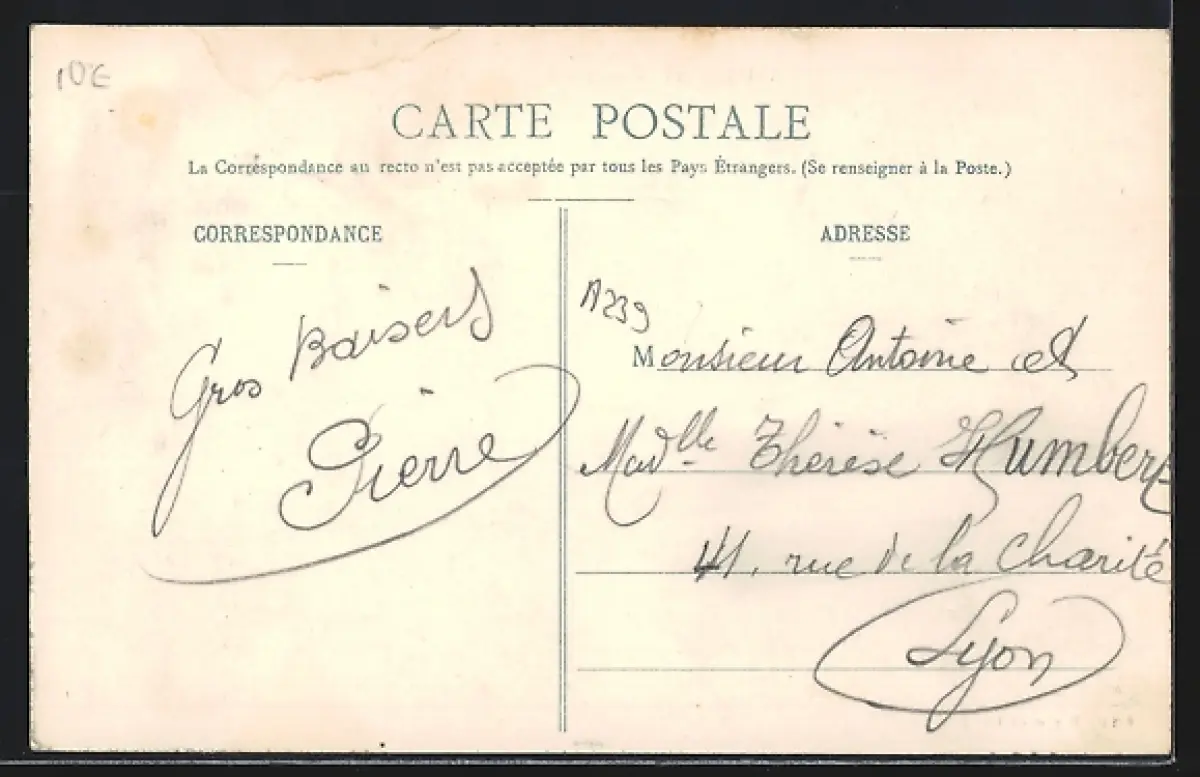 10€
CARTE POSTALE
La Correspondance au recto n'est pas acceptée par tous les Pays Étrangers. (Se renseigner à la Poste.)
CORRESPONDANCE
Gros Baisers
Pierre
ADRESSE
A239
Monsieur Antoine et
Madlle Thérèse Humbert
41, rue de la Charité
Lyon